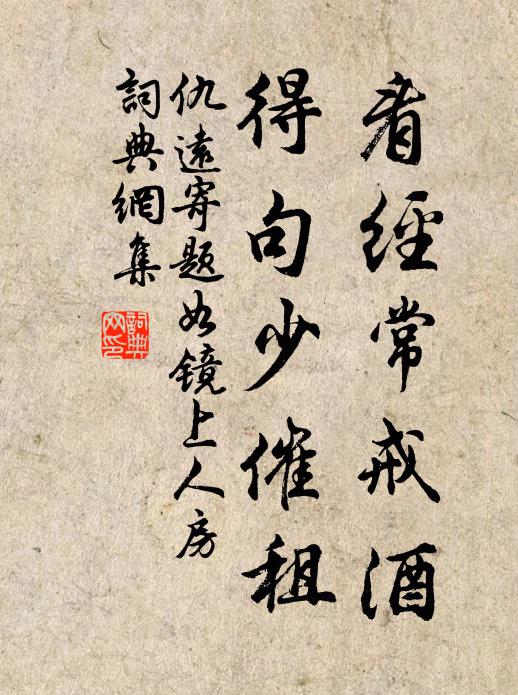 看經常戒酒
得句少催租
仇遠寄題如鏡上人房
詞典網集
詞典
网印